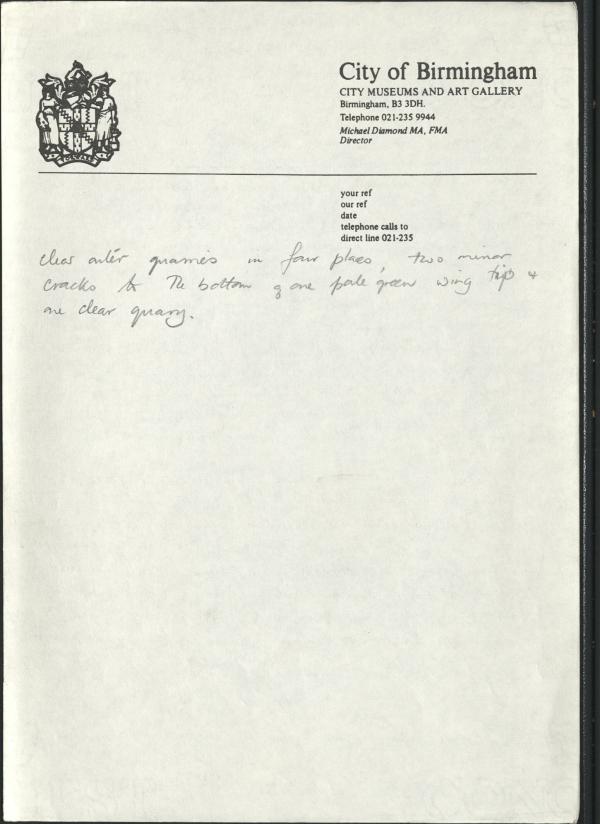 City of Birmingham
CITY MUSEUMS AND ART GALLERY
Birmingham, B3 3DH.
Telephone 021-235 9944
Michael Diamond MA, FMA
Director
FORWARD
your ref
our ref
date
telephone calls to
direct line 021-235
clear outer quarries in four places, two minor
cracks to the bottom of one pale green wing tip +
one clear quarry.